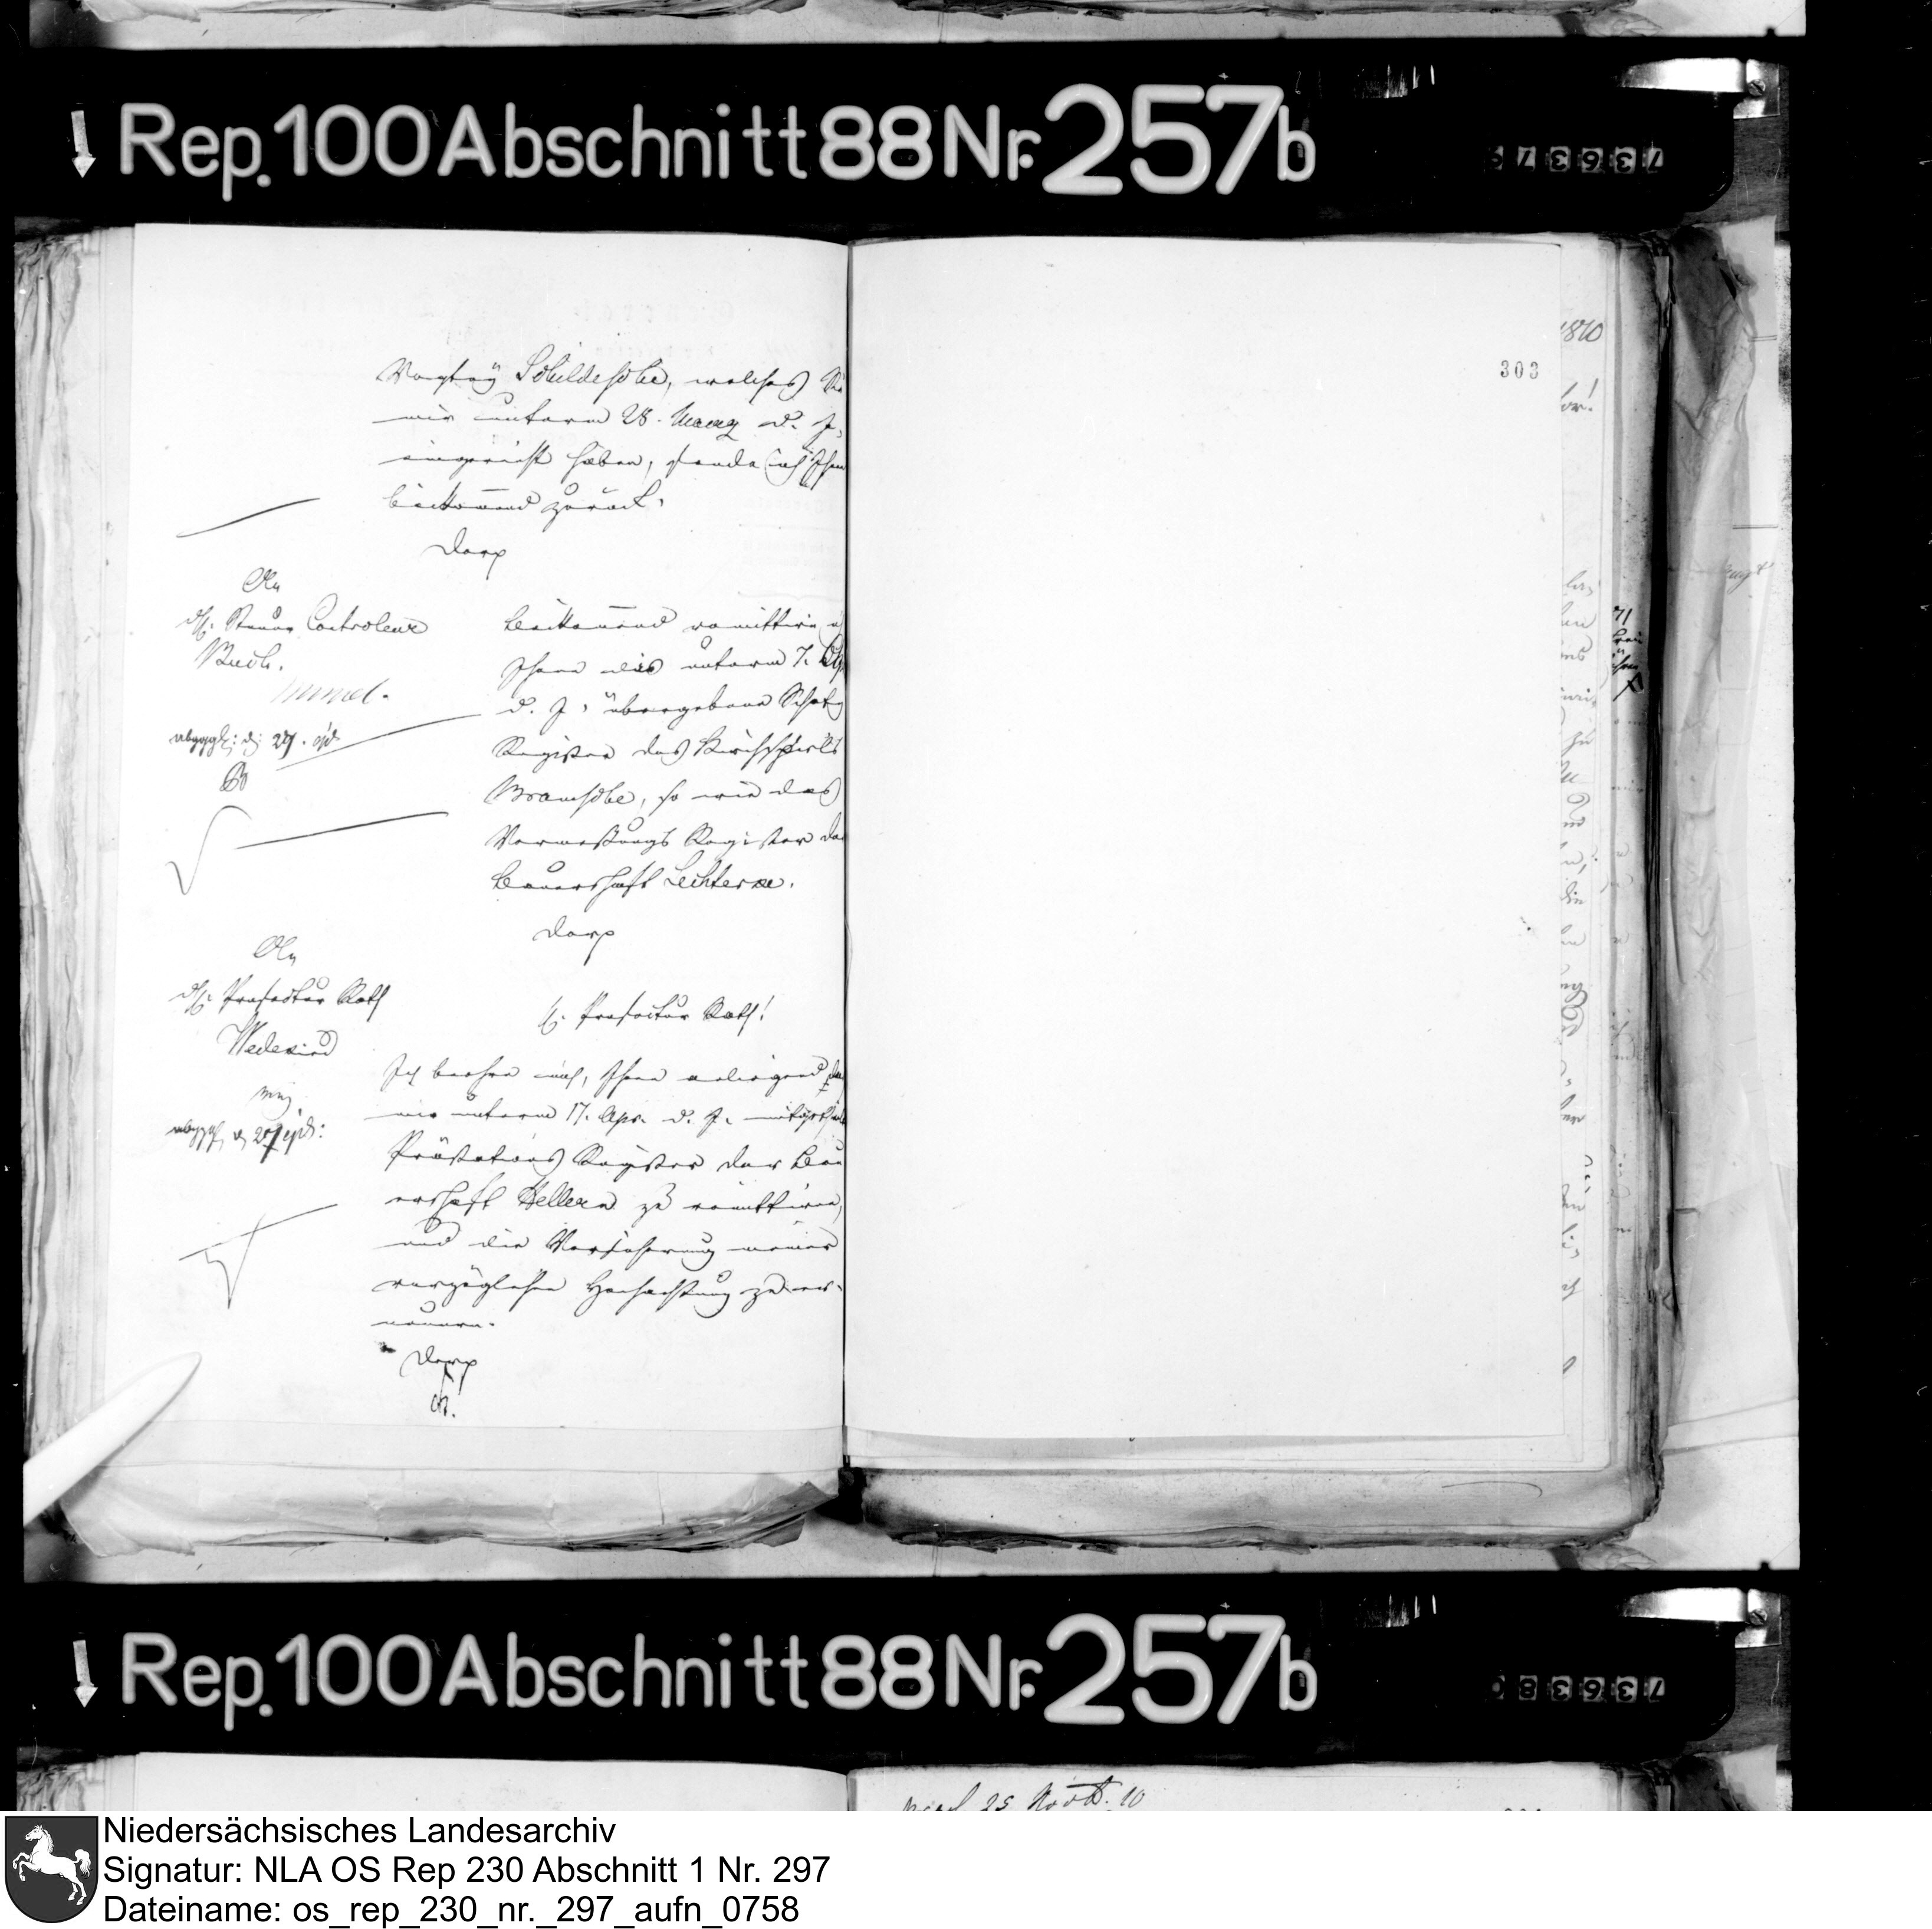 Rep. 100 Abschnitt 88 Nr. 257b
736379
303
1810
Vogtey Schildesche, welches Sie
mir unterm 28. Maerz d. J.
eingereicht haben, sende ich Ihnen
beikomend zurück.
Dorp
An
dH. Steuer Controleur
Buch.
mund.
abggl: d: 27. ejd
Beikomend remittire ich
Ihnen das unterm 7.
d. J. übergebene Schatz
Register des Kirchspiels
Bramsche, so wie das
Vermessungs Register der
Bauerschaft Lechterke.
Dorp
An
dH. Prefectur Rath
H. Prefectur Rath!
Ich beehre mich, Ihnen anliegend das
mir unterm 17. Apr. d. J. mitgetheilte
Prästations Register der Bau
erschaft Hellern zu remittiren,
und die Versicherung meiner
vorzüglichen Hochachtung zu er-
neuern.
Dorp
Rep. 100 Abschnitt 88 Nr. 257b
736380
25 Novb. 10
Niedersächsisches Landesarchiv
Signatur: NLA OS Rep 230 Abschnitt 1 Nr. 297
Dateiname: os_rep_230_nr._297_aufn_0758